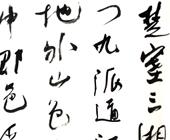 楚塞三湘
门九派通江
地外山色
中郡邑